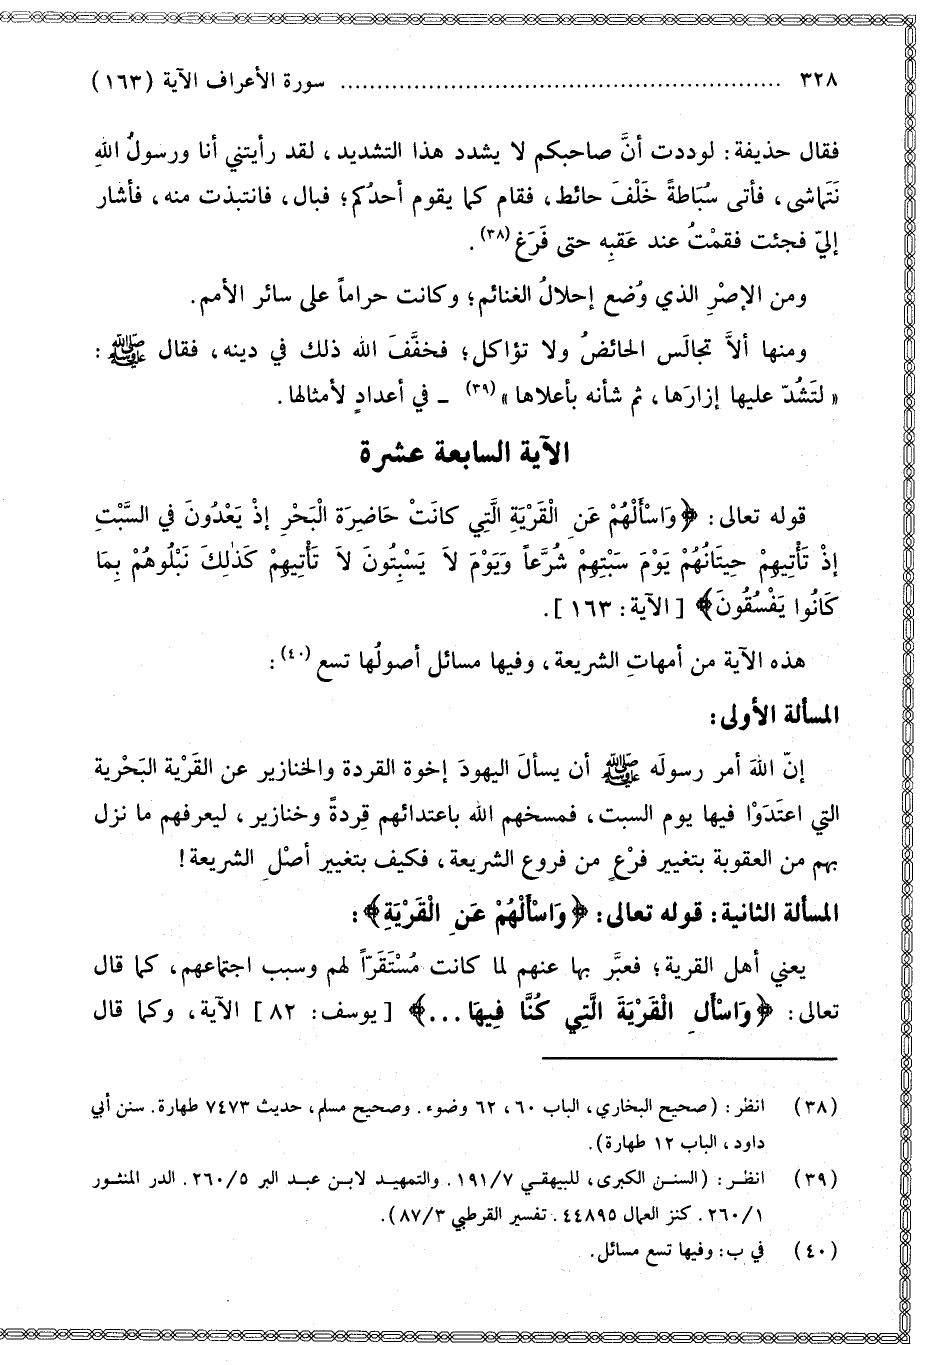 ٣٢٨ ........................................................ سورة الأعراف الآية (١٦٣)
فقال حذيفة: لوددت أنَّ صاحبكم لا يشدد هذا التشديد، لقد رأيتني أنا ورسولُ اللهِ
نَتَماشى، فأتى سُبَاطةً خَلْفَ حائط، فقام كما يقوم أحدُكم؛ فبال، فانتبذت منه، فأشار
إليّ فجئت فقمْتُ عند عَقبِه حتى فَرَغ(٣٨).
ومن الإصْرِ الذي وُضع إحلالُ الغنائم؛ وكانت حراماً على سائر الأمم.
ومنها ألاَّ تجالَس الحائضُ ولا تؤاكل؛ فخفَّفَ الله ذلك في دينه، فقال ﷺ:
« لتَشُدّ عليها إزارَها، ثم شأنه بأعلاها »(٣٩) ـ في أعدادٍ لأمثالها.
الآية السابعة عشرة
قوله تعالى: ﴿وَاسْأَلْهُمْ عَنِ الْقَرْيَةِ الَّتِي كانَتْ حَاضِرَةَ الْبَحْرِ إذْ يَعْدُونَ في السَّبْتِ
إذْ تَأْتِيهِمْ حِيتَانُهُمْ يَوْمَ سَبْتِهِمْ شُرَّعاً وَيَوْمَ لاَ يَسْبِتُونَ لاَ تَأْتِيهِمْ كَذٰلِكَ نَبْلُوهُمْ بِمَا
كَانُوا يَفْسُقُونَ﴾ [الآية: ١٦٣].
هذه الآية من أمهاتِ الشريعة، وفيها مسائل أصولُها تسع(٤٠):
المسألة الأولى:
إنّ اللهَ أمر رسولَه ﷺ أن يسألَ اليهودَ إخوة القردة والخنازير عن القَرْية البَحْرية
التي اعتَدَوْا فيها يوم السبت، فمسخهم الله باعتدائهم قِردةً وخنازير، ليعرفهم ما نزل
بهم من العقوبة بتغيير فَرْعٍ من فروع الشريعة، فكيف بتغيير أصْلِ الشريعة!
المسألة الثانية: قوله تعالى: ﴿وَاسْأَلْهُمْ عَنِ الْقَرْيَةِ﴾:
يعني أهل القرية؛ فعبَّر بها عنهم لما كانت مُسْتَقَرّاً لهم وسبب اجتماعهم، كما قال
تعالى: ﴿وَاسْأَلِ الْقَرْيَةَ الَّتِي كُنَّا فِيهَا...﴾ [يوسف: ٨٢] الآية، وكما قال
(٣٨) انظر: (صحيح البخاري، الباب ٦٠، ٦٢ وضوء. وصحيح مسلم، حديث ٧٤٧٣ طهارة. سنن أبي
داود، الباب ١٢ طهارة).
(٣٩) انظر: (السنن الكبرى، للبيهقي ١٩١/٧. والتمهيد لابن عبد البر ٢٦٠/٥. الدر المنثور
٢٦٠/١. كنز العمال ٤٤٨٩٥. تفسير القرطبي ٨٧/٣).
(٤٠) في ب: وفيها تسع مسائل.